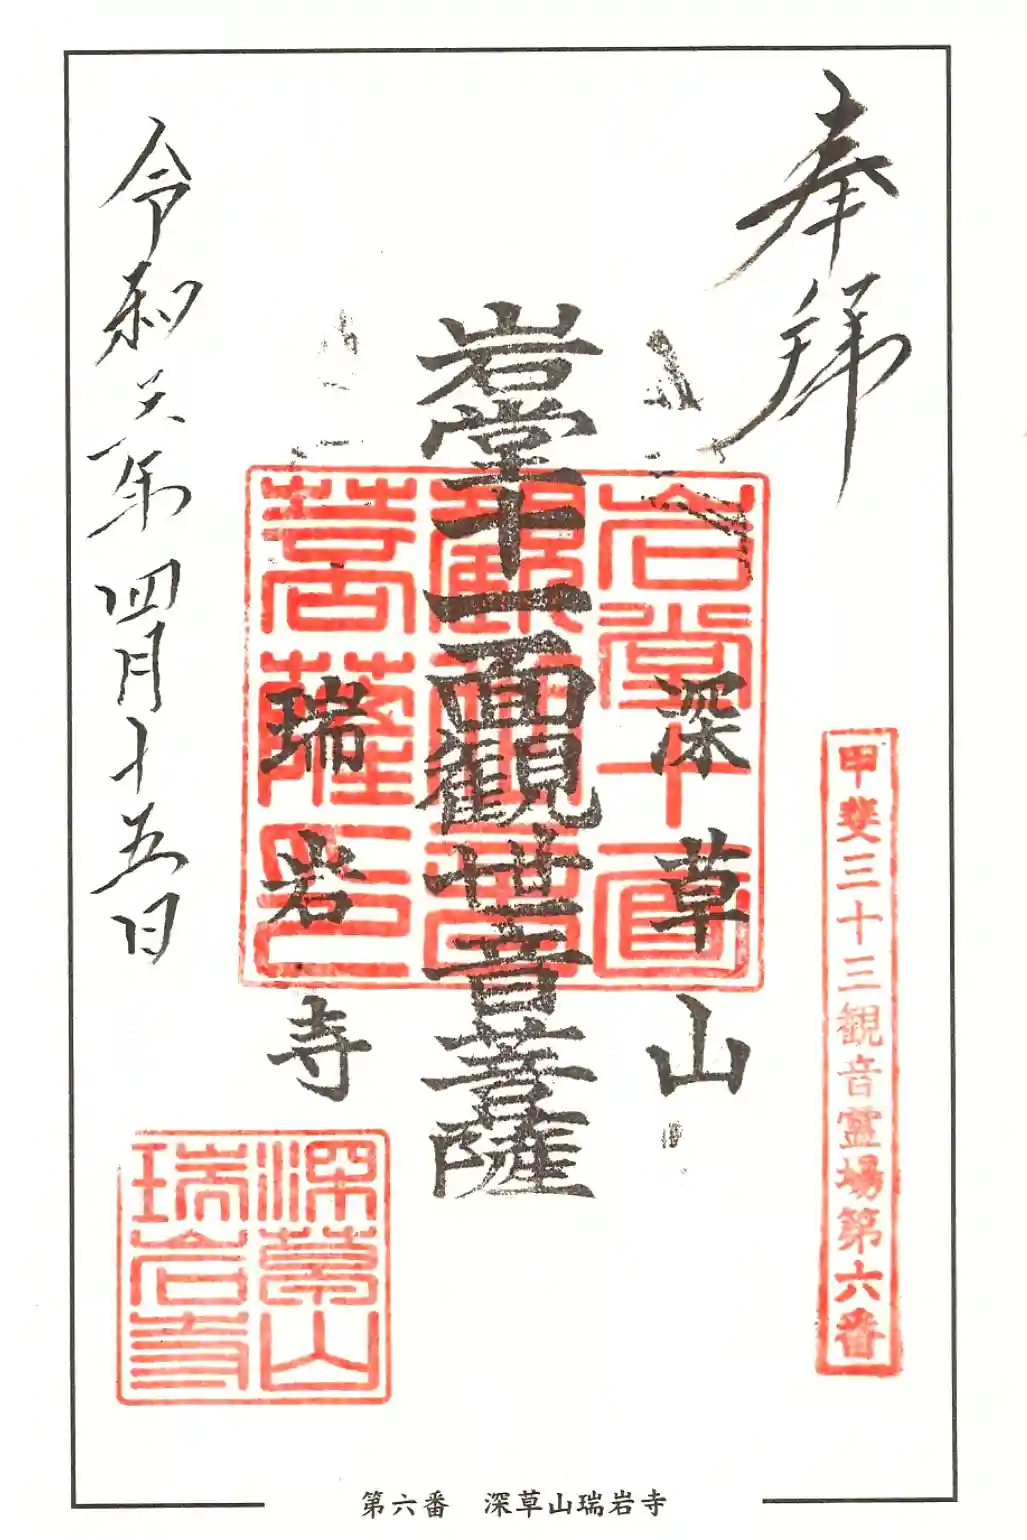 奉拝
甲斐三十三観音霊場第六番
深草山
岩堂十一面觀世音菩薩
瑞岩寺
令和六年四月十五日
岩堂十一面
菩薩印
深草山
瑞岩寺
第六番　深草山瑞岩寺